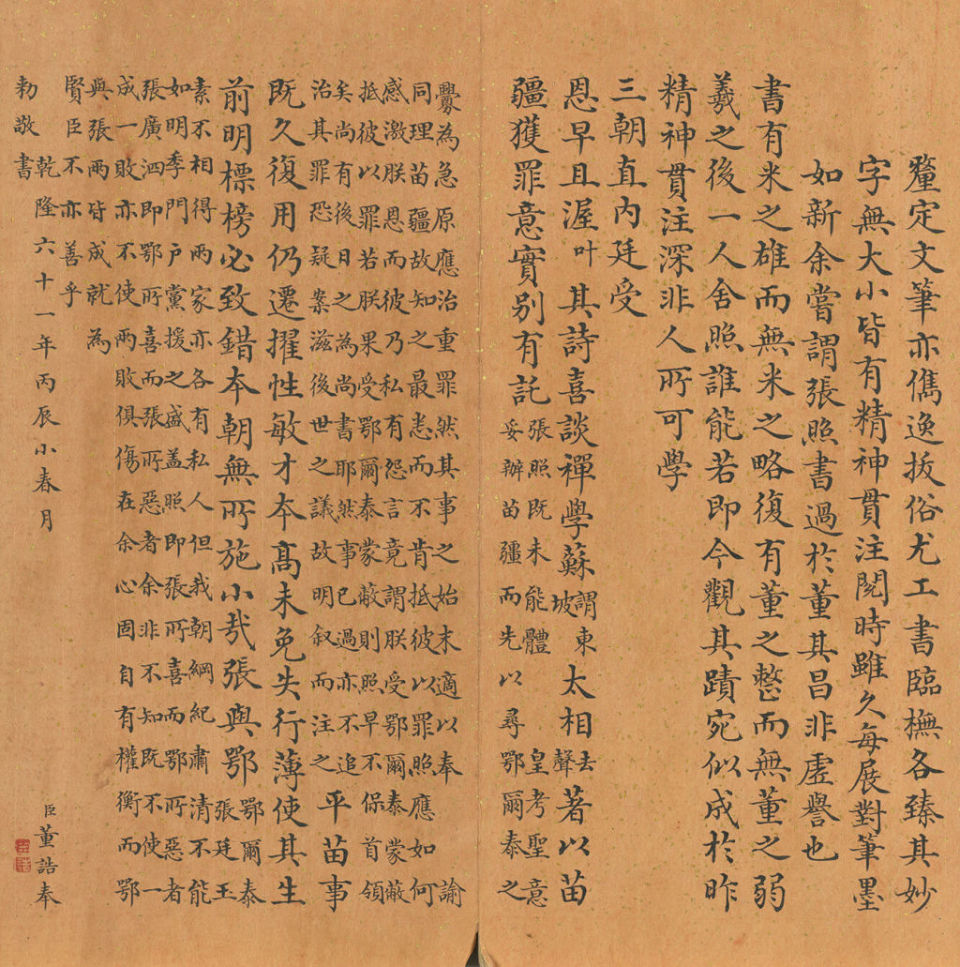 釐定文筆亦儁逸拔俗尤工書臨橅各臻其妙
字無大小皆有精神貫注閱時雖久每展對筆墨
如新余嘗謂張照書過於董其昌非虛譽也
書有米之雄而無米之略復有董之整而無董之弱
羲之後一人舍照誰能若即今觀其蹟宛似成於昨
精神貫注深非人所可學
三朝直內廷受
恩早且渥叶其詩喜談禪學蘇謂東坡太相去聲著以苗
疆獲罪意實別有託
張照既未能體皇考聖意
妥辦苗疆而先以尋鄂爾泰之
釁為急原應治重罪然其事之始末適以奉諭
同理苗疆故知之最悉而不肯抵彼以罪照應如何
感激朕恩而彼乃私有怨言竟謂朕受鄂爾泰蒙蔽
抵彼以罪若朕果受鄂爾泰蒙蔽則照早不保首領
矣尚有後日之為尚書耶然事已過亦不追
治其罪恐疑案滋後世之議故明叙而注之
平苗事
既久復用仍遷擢性敏才本高未免失行薄使其生
前明標榜必致錯本朝無所施小哉張與鄂
鄂爾泰
張廷玉
素不相得兩家亦各有私人但我朝綱紀肅清不能
如明季門戶黨援之盛蓋照即張所喜而鄂所惡者
張廣泗即鄂所喜而張所惡者余非不知既不使一
成一敗亦不使兩敗俱傷在余心固自有權衡而鄂
與張兩皆成就為
賢臣不亦善乎
乾隆六十一年丙辰小春月
臣董誥奉
勅敬書